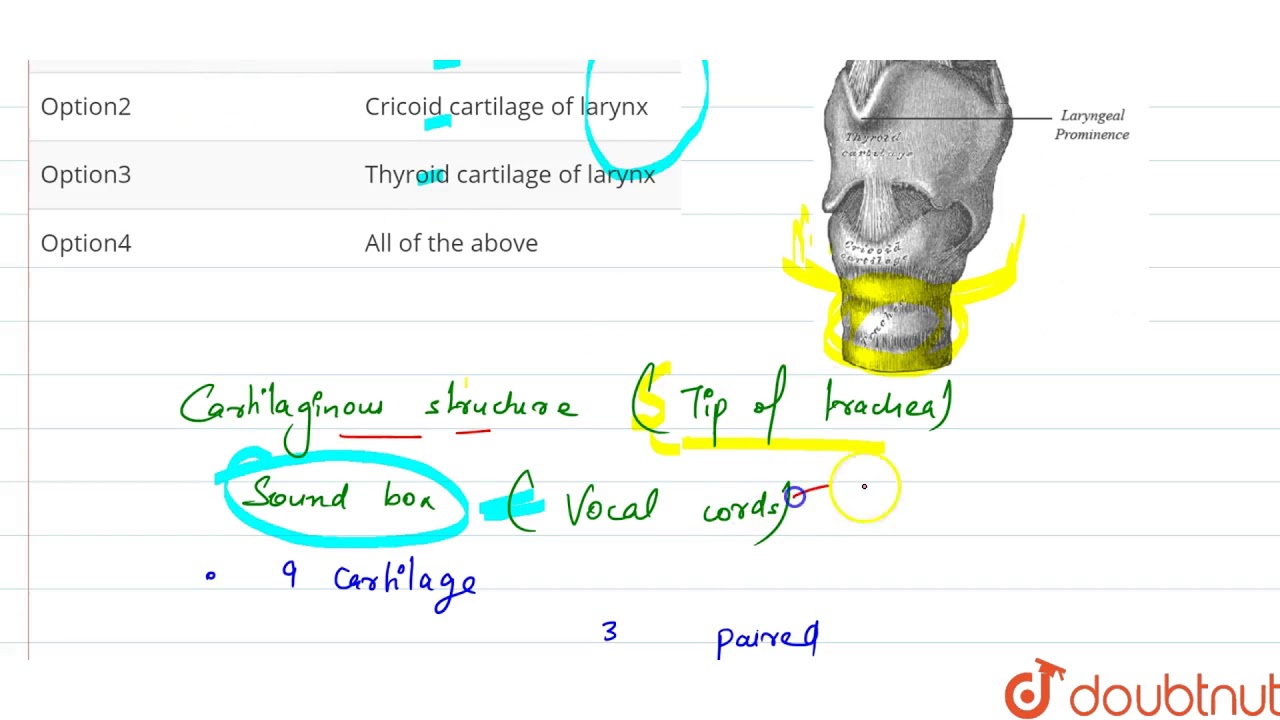 Option2 Cricoid cartilage of larynx
Option3 Thyroid cartilage of larynx
Option4 All of the above
Laryngeal
Prominence
Thyroid
cartilage
Cricoid
cartilage
Trachea
Cartilaginous structure (Tip of trachea)
Sound box (Vocal cords)
• 9 Cartilage
3 paired
doubtnut